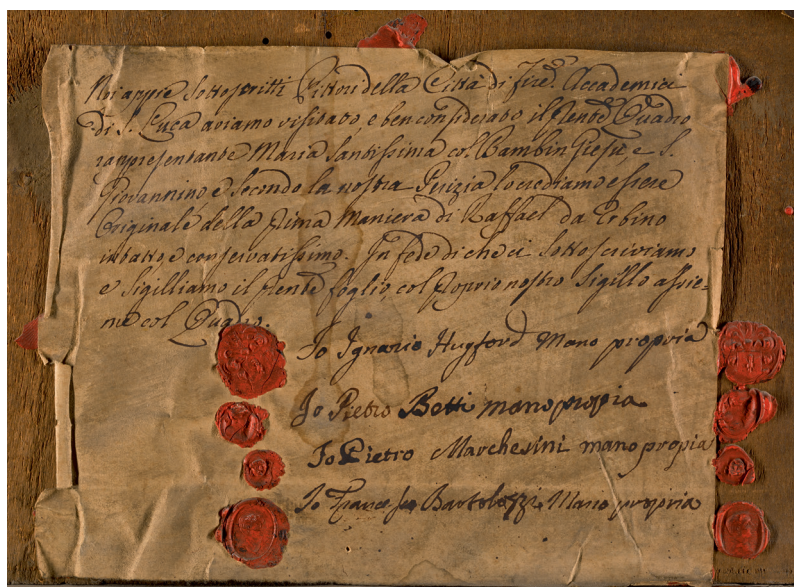 Noi appiè sottoscritti Pittori della Città di Fire. Accademici
di S. Luca aviamo visitato, e ben considerato il Quadro
rappresentante Maria Santissima col Bambin Giesù, e S.
Giovannino e secondo la nostra Perizia lo crediamo essere
Originale della Pima Maniera di Raffael da Urbino
intatto e conservatissimo. In fede di che ci sottoscriviamo
e sigilliamo il pente foglio, col Proprio nostro Sigillo assie=
me col Quadro.
Io Ignazio Hugford Mano propria
Io Pietro Botti mano propia
Io Pietro Marchesini mano propia
Io Francesco Bartolozzi Mano propria